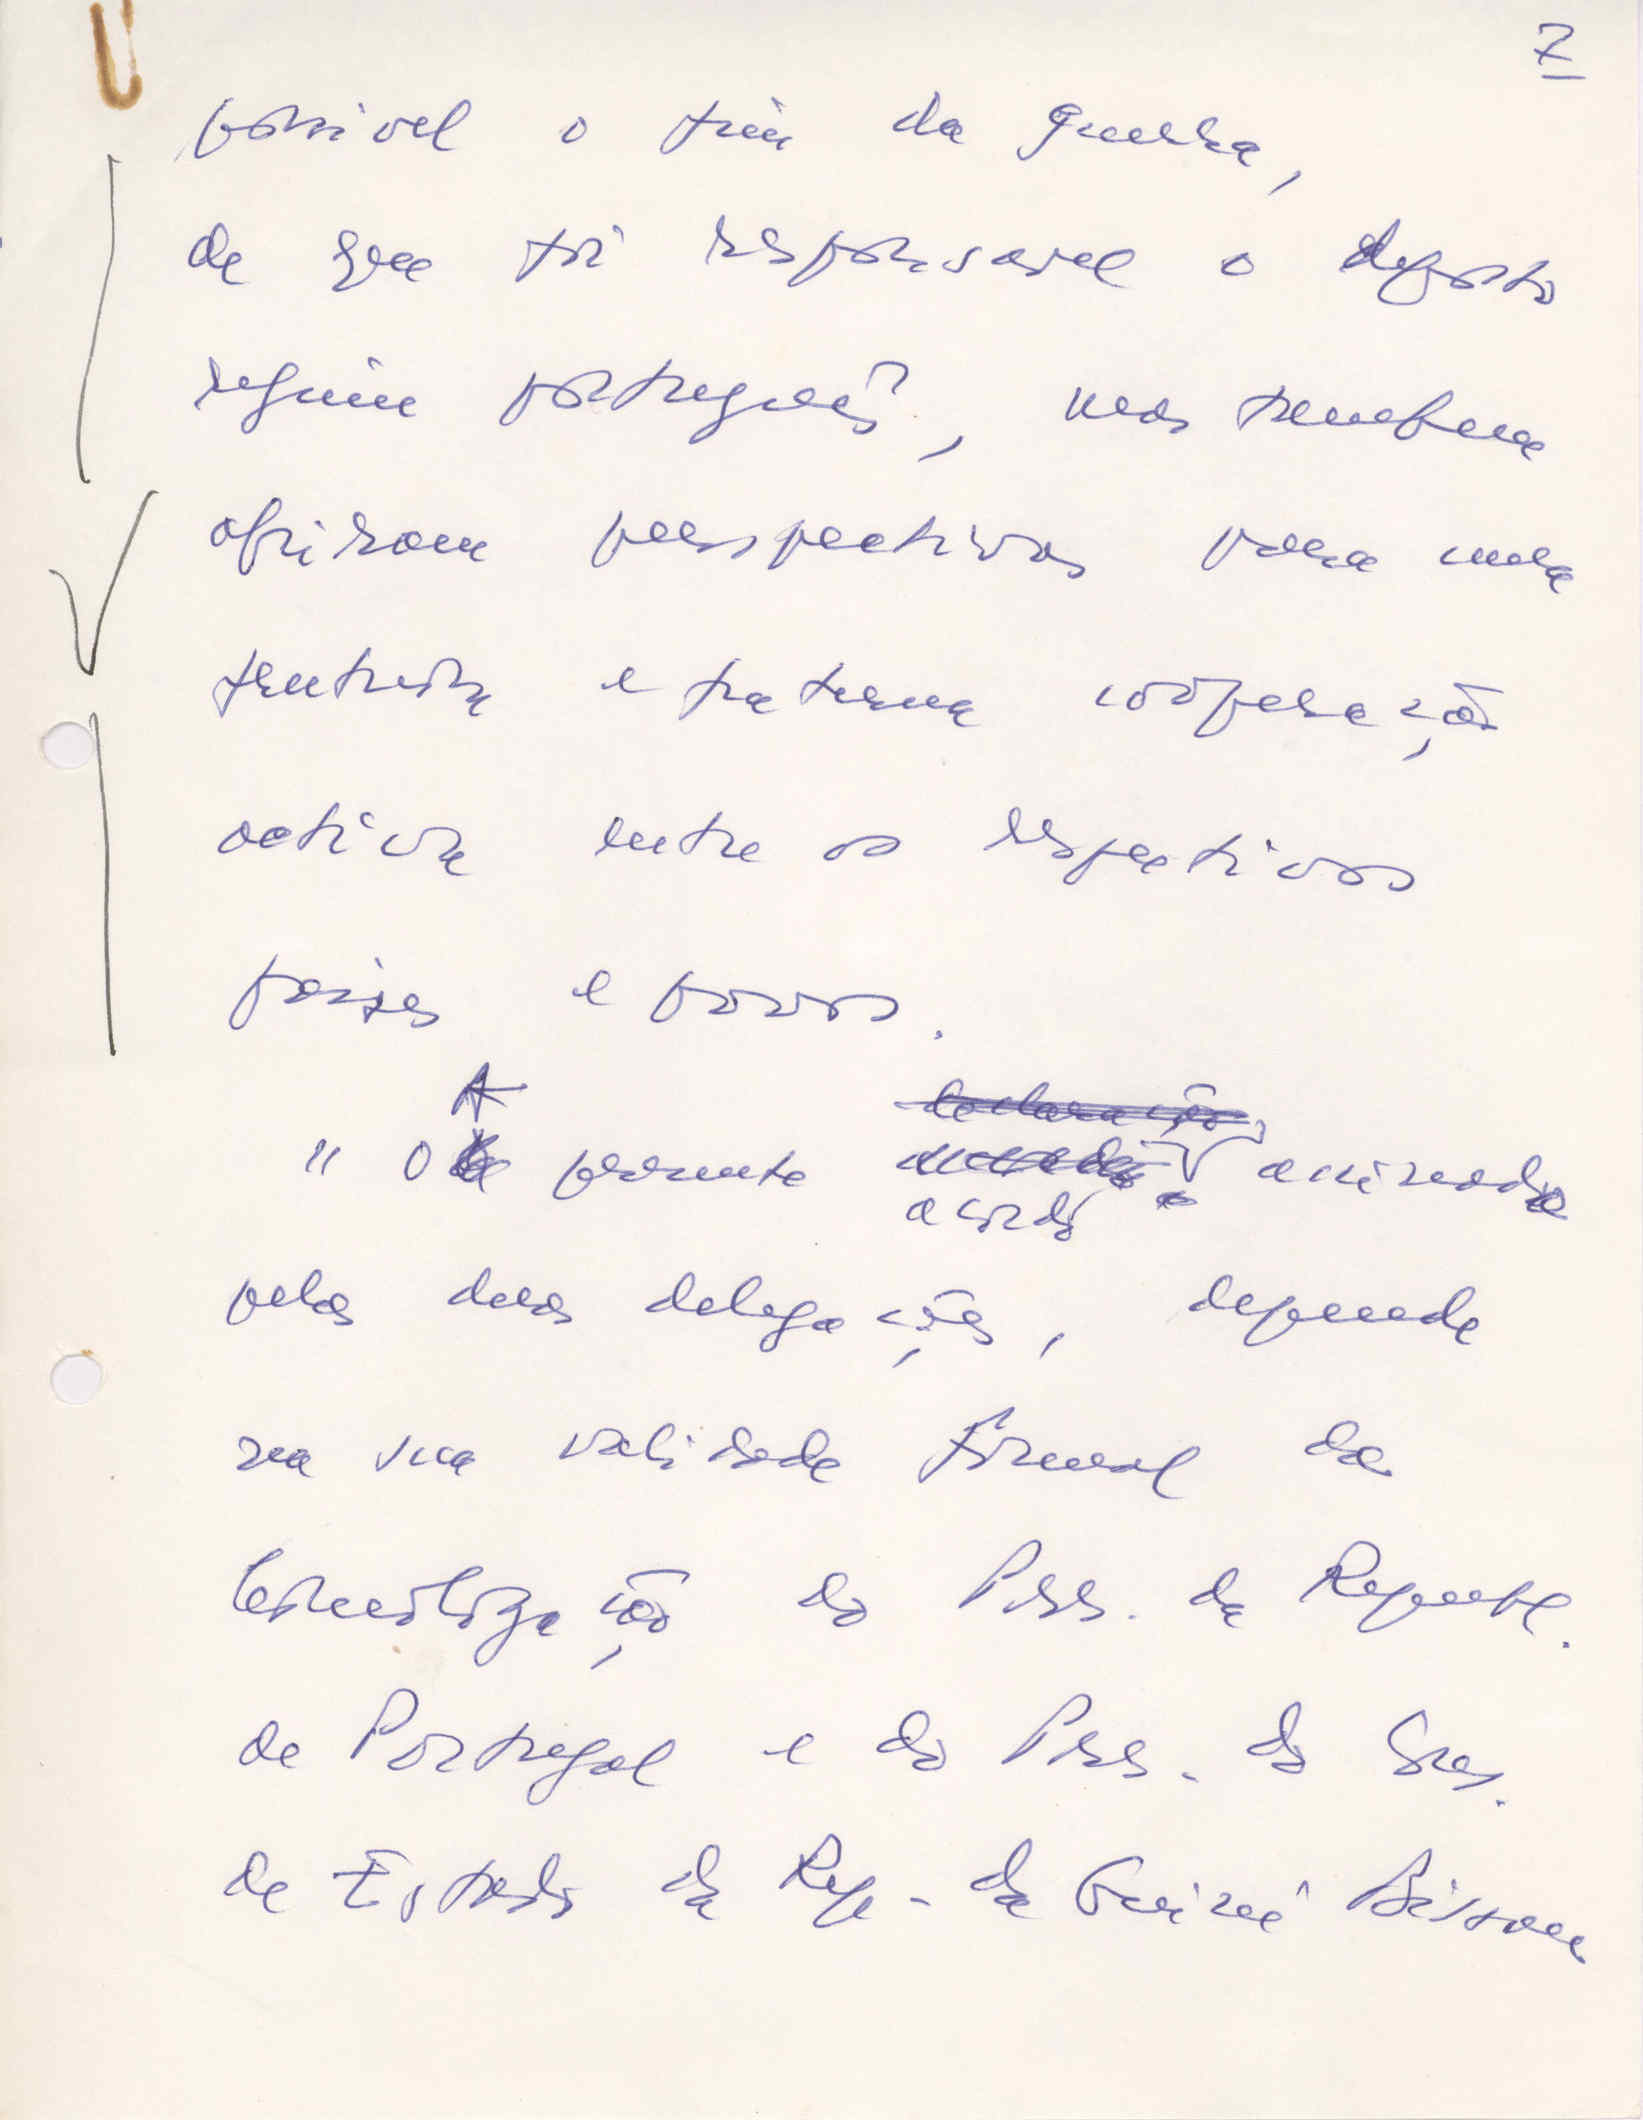 7
possivel o fim da guerra,
de que foi responsavel o deposto
regime português, mas tambem
abriram perspectivas para uma
frutuosa e fraterna cooperação
activa entre os respectivos
paises e povos.
A declaração
" O presente assinado
acordo
pelas duas delegações, depende
na sua validade formal da
homologação do Pres. da Republ.
de Portugal e do Pres. do Cons.
de Estado da Rep. da Guiné Bissau